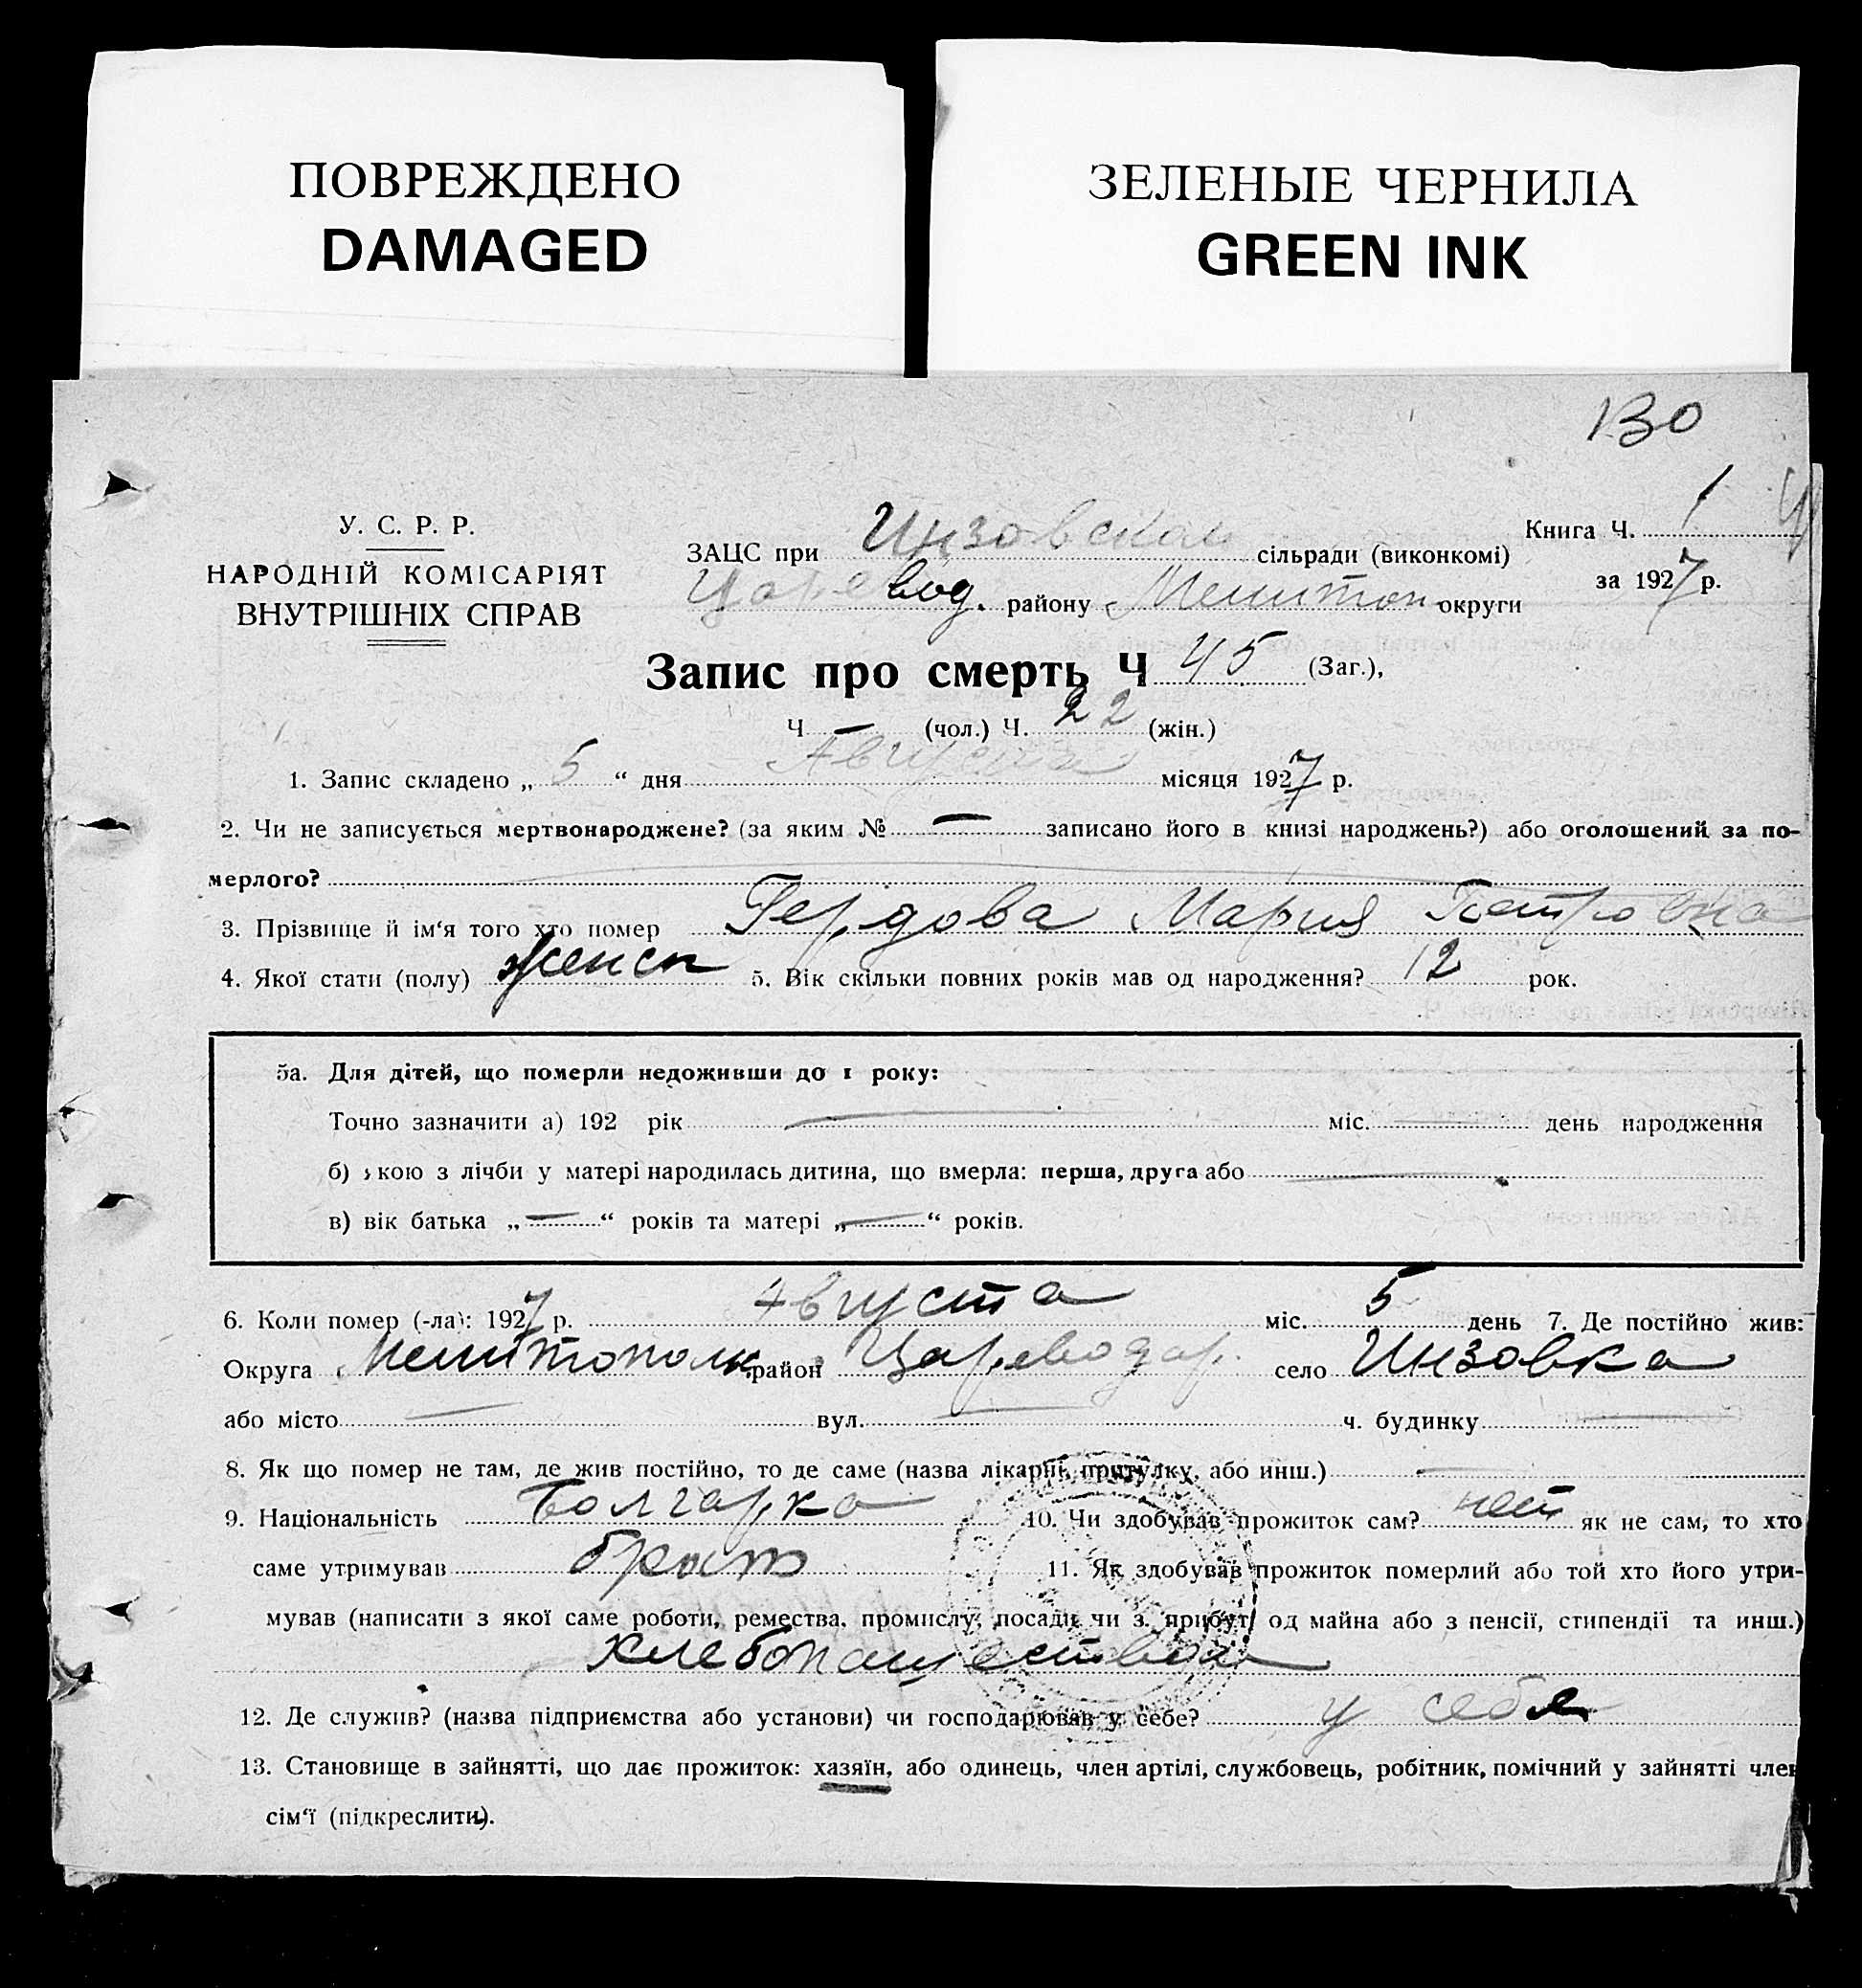 ПОВРЕЖДЕНО
DAMAGED
ЗЕЛЕНЫЕ ЧЕРНИЛА
GREEN INK
130
У. С. Р. Р.
НАРОДНІЙ КОМІСАРІЯТ
ВНУТРІШНІХ СПРАВ
ЗАЦС при Инзовском сільради (виконкомі)
Царевод. району Мелитоп округи
Книга Ч. 1
за 1927 р.
Запис про смерть Ч 45 (Заг.),
Ч — (чол.) Ч. 22 (жін.)
1. Запис складено „ 5 “ дня Августа місяця 1927 р.
2. Чи не записується мертвонароджене? (за яким № — записано його в книзі народжень?) або оголошений за по-
мерлого?
3. Прізвище й ім‘я того хто помер Гердова Мария Петровна
4. Якої стати (полу) женск 5. Вік скільки повних років мав од народження? 12 рок.
5а. Для дітей, що померли недоживши до 1 року:
Точно зазначити а) 192 рік — міс. — день народження
б) якою з лічби у матері народилась дитина, що вмерла: перша, друга або —
в) вік батька „ — “ років та матері „ — “ років.
6. Коли помер (-ла): 1927 р. Августа міс. 5 день 7. Де постійно жив:
Округа Мелитополь район Цареводар. село Инзовка
або місто — вул. — ч. будинку —
8. Як що помер не там, де жив постійно, то де саме (назва лікарні, притулку, або инш.) —
9. Національність Болгарка 10. Чи здобував прожиток сам? нет як не сам, то хто
саме утримував брат 11. Як здобував прожиток померлий або той хто його утри-
мував (написати з якої саме роботи, ремества, промислу, посади чи з прибут. од майна або з пенсії, стипендії та инш.)
Хлебопашеством
12. Де служив? (назва підприємства або установи) чи господарював у себе? у себя
13. Становище в зайнятті, що дає прожиток: хазяїн, або одинець, член артілі, службовець, робітник, помічний у зайнятті член
сім‘ї (підкреслити).